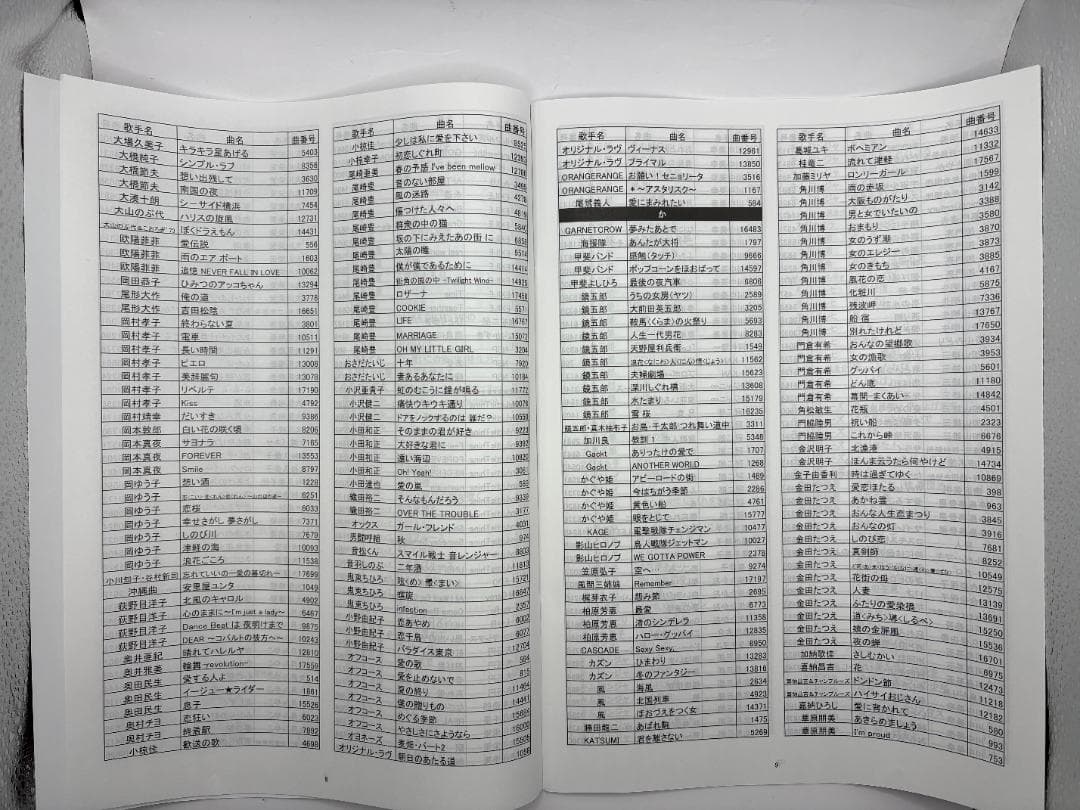 歌手名 曲名 曲番号
大場久美子 キラキラ星あげる 5403
大橋純子 シンプル・ラブ 8356
大橋節夫 想い出残して 3630
大橋節夫 南国の夜 11709
シーサイド横浜 7454
大山のぶ代 ハリスの旋風 12731
ぼくドラえもん 14431
欧陽菲菲 雪伝説 556
欧陽菲菲 雨のエア ポート 1603
欧陽菲菲 追憶 NEVER FALL IN LOVE 10062
岡田恭子 ひみつのアッコちゃん 13294
尾形大作 俺の道 3778
尾形大作 吉田松陰 16651
岡村孝子 終わらない夏 3801
岡村孝子 電車 10511
岡村孝子 長い時間 11291
岡村孝子 ピエロ 13008
岡村孝子 美辞麗句 13078
岡村孝子 リベルテ 17190
岡村孝子 Kiss 4792
岡村靖幸 だいすき 9386
岡本敦郎 白い花の咲く頃 8206
岡本真夜 サヨナラ 7165
岡本真夜 FOREVER 13553
岡本真夜 Smile 8797
岡ゆう子 想い酒 1228
岡ゆう子 6251
岡ゆう子 恋桜 6033
岡ゆう子 幸せさがし 夢さがし 7371
岡ゆう子 しのび川 7679
岡ゆう子 津軽の海 10093
岡ゆう子 浪花ごころ 11538
小川知子・谷村新司 忘れていいの―愛の幕切れ― 17699
沖縄曲 安里屋ユンタ 1049
荻野目洋子 北風のキャロル 4902
荻野目洋子 心のままに～I'm just a lady～ 6467
荻野目洋子 Dance Beat は 夜明けまで 9875
荻野目洋子 DEAR ～コバルトの彼方へ～ 10243
奥井亜紀 晴れてハレルヤ 12610
奥井雅美 輪舞-revolution- 17559
奥田民生 愛する人よ 514
奥田民生 イージュー★ライダー 1881
奥田民生 息子 15526
奥村チヨ 恋狂い 6023
奥村チヨ 終着駅 7892
小椋佳 歓送の歌 4698
歌手名 曲名 曲番号
小椋佳 少しは私に愛を下さい 8525
小椋幸子 初恋しぐれ町
尾崎亜美 春の予感 I've been mellow
尾崎豊 音のない部屋
尾崎豊 風の迷路 4276
尾崎豊 傷つけた人々へ
尾崎豊 群衆の中の猫 5840
尾崎豊 坂の下にみえたあの街 に 6858
尾崎豊 太陽の瞳
尾崎豊 僕が僕であるために 14414
尾崎豊 街角の風の中 -Twilight Wind-
尾崎豊 ロザーナ
尾崎豊 COOKIE
尾崎豊 LIFE 16767
尾崎豊 MARRIAGE 15072
尾崎豊 OH MY LITTLE GIRL 3204
おさだたいじ 十年 7920
おさだたいじ 妻あるあなたに 10194
小沢亜貴子 虹のむこうに鐘が鳴る 11772
小沢健二 痛快ウキウキ通り 10076
小沢健二 ドアをノックするのは 誰だ? 10559
小田和正 そのままの君が好き 9223
小田和正 大好きな君に 9397
小田和正 遠い海辺 10920
小田和正 Oh! Yeah!
小田達也 愛の嵐
織田裕二 そんなもんだろう 9339
織田裕二 OVER THE TROUBLE 3177
オックス ガール・フレンド 4031
男闘呼組 秋 974
音松くん スマイル戦士 音レンジャー 8803
音羽しのぶ 二年酒 11813
鬼束ちひろ 15721
鬼束ちひろ 螺旋 16647
鬼束ちひろ infection 2352
小野由紀子 恋あやめ 6002
小野由紀子 恋千鳥 6077
小野由紀子 パラダイス東京 12704
オフコース 愛の歌 594
オフコース 愛を止めないで 815
オフコース 夏の終り 11404
オフコース 僕の贈りもの 14441
オフコース めぐる季節
オフコース やさしさにさようなら 16000
オヨネーズ 麦畑・パート2 15505
オリジナル・ラヴ 朝日のあたる道
8
歌手名 曲名 曲番号
オリジナル・ラヴ ヴィーナス 12961
オリジナル・ラヴ プライマル 13850
ORANGERANGE お願い!セニョリータ 3516
ORANGERANGE ＊～アスタリスク～ 1167
尾鷲義人 愛にまみれたい 584
か
GARNETCROW 夢みたあとで 16483
海援隊 あんたが大将 1797
甲斐バンド 感触(タッチ) 9666
甲斐バンド ポップコーンをほおばって 14597
甲斐よしひろ 最後の夜汽車 6806
鏡五郎 うちの女房(ヤツ) 2589
鏡五郎 大前田英五郎 3205
鏡五郎 鞍馬(くらま)の火祭り 5693
鏡五郎 人生一代男花 8283
鏡五郎 天野屋利兵衛 1549
鏡五郎 浪花(なにわ)人(にん)情(じょう) 11562
鏡五郎 夫婦劇場 15623
鏡五郎 深川しぐれ橋 13608
鏡五郎 水たまり 15179
鏡五郎 雪 桜 16235
鏡五郎・真木柚布子 お島・千太郎 つれ舞い道中 3311
加川良 教訓 1 5348
Gackt ありったけの愛で 1707
Gackt ANOTHER WORLD 1268
かぐや姫 アビーロードの街 1489
かぐや姫 今はちがう季節 2286
かぐや姫 黄色い船 4761
かぐや姫 眼をとじて 15777
KAGE 電撃戦隊チェンジマン 10477
影山ヒロノブ 鳥人戦隊ジェットマン 10027
影山ヒロノブ WE GOTTA POWER 2378
笠原弘子 空へ… 9274
風間三姉妹 Remember 17197
梶芽衣子 怨み節 2695
柏原芳恵 最愛 6773
柏原芳恵 渚のシンデレラ 11358
柏原芳恵 ハロー・グッバイ 12835
CASCADE Sexy Sexy, 8950
カズン ひまわり 13283
カズン 冬のファンタジー 13816
風 海風 2634
風 北国列車 4923
風 ほおづえをつく女 14371
勝田龍二 あばれ駒 1475
KATSUMI 君を離さない 5269
歌手名 曲名 曲番号
葛城ユキ ボヘミアン 14633
桂竜二 流れて津軽 11332
加藤ミリヤ ロンリーガール 17567
角川博 雨の赤坂 1599
角川博 大阪ものがたり 3142
角川博 男と女でいたいの 3388
角川博 おまもり 3580
角川博 女のうず潮 3870
角川博 女のエレジー 3873
角川博 女のきもち 3885
角川博 風花の恋 4167
角川博 化粧川 5875
角川博 残波岬 7336
角川博 船 宿 13767
角川博 別れたけれど 17650
門倉有希 おんなの望郷歌 3934
門倉有希 女の漁歌 3953
門倉有希 グッバイ 5601
門倉有希 どん底 11180
門倉有希 幕間―まくあい 14842
角松敏生 花瓶 4501
門脇陸男 祝い船 2323
門脇陸男 これから峠 6676
金沢明子 北漁港 4915
金沢明子 ほんま云うたら何やけど 14734
金子由香利 時は過ぎてゆく 10869
金田たつえ 愛恋ほたる 398
金田たつえ あかね雲 963
金田たつえ おんな人生恋まつり 3845
金田たつえ おんなの灯 3916
金田たつえ しのび恋 7681
金田たつえ 真剣師 8252
金田たつえ 10549
金田たつえ 花街の母 12575
金田たつえ 人妻 13139
金田たつえ ふたりの愛染橋 13691
金田たつえ 道(みち)導(しるべ) 15250
金田たつえ 娘の金屏風 15536
金田たつえ 夜の蝉 16701
加納歌佳 さしむかい 6975
喜納昌吉 花 12473
喜納昌吉&チャンプルーズ ドンドン節 11218
喜納昌吉&チャンプルーズ ハイサイおじさん 12182
嘉納ひろし 愛に背かれて 580
華原朋美 あきらめましょう 993
華原朋美 I'm proud 753
9